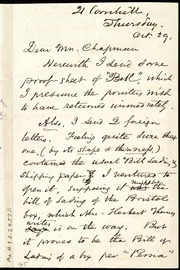 21 Cornhill,
Thursday,
Oct 29.
Dear Mrs. Chapman
Herewith I send some
proof sheet of "Bell," which
I presume the printers wish
to have returned immediately.
Also, I send 2 foreign
letters. Feeling quite sure that
one, (by its shape & thinness)
contained the usual Bill Lading &
Shipping paper, I ventured to
open it, supposing it might be the
bill of lading of the Bristol
box, which Mrs. Herbert Thomas
writes is on the way. But
it proves to be the Bill of
Lading of a box per "Persia"